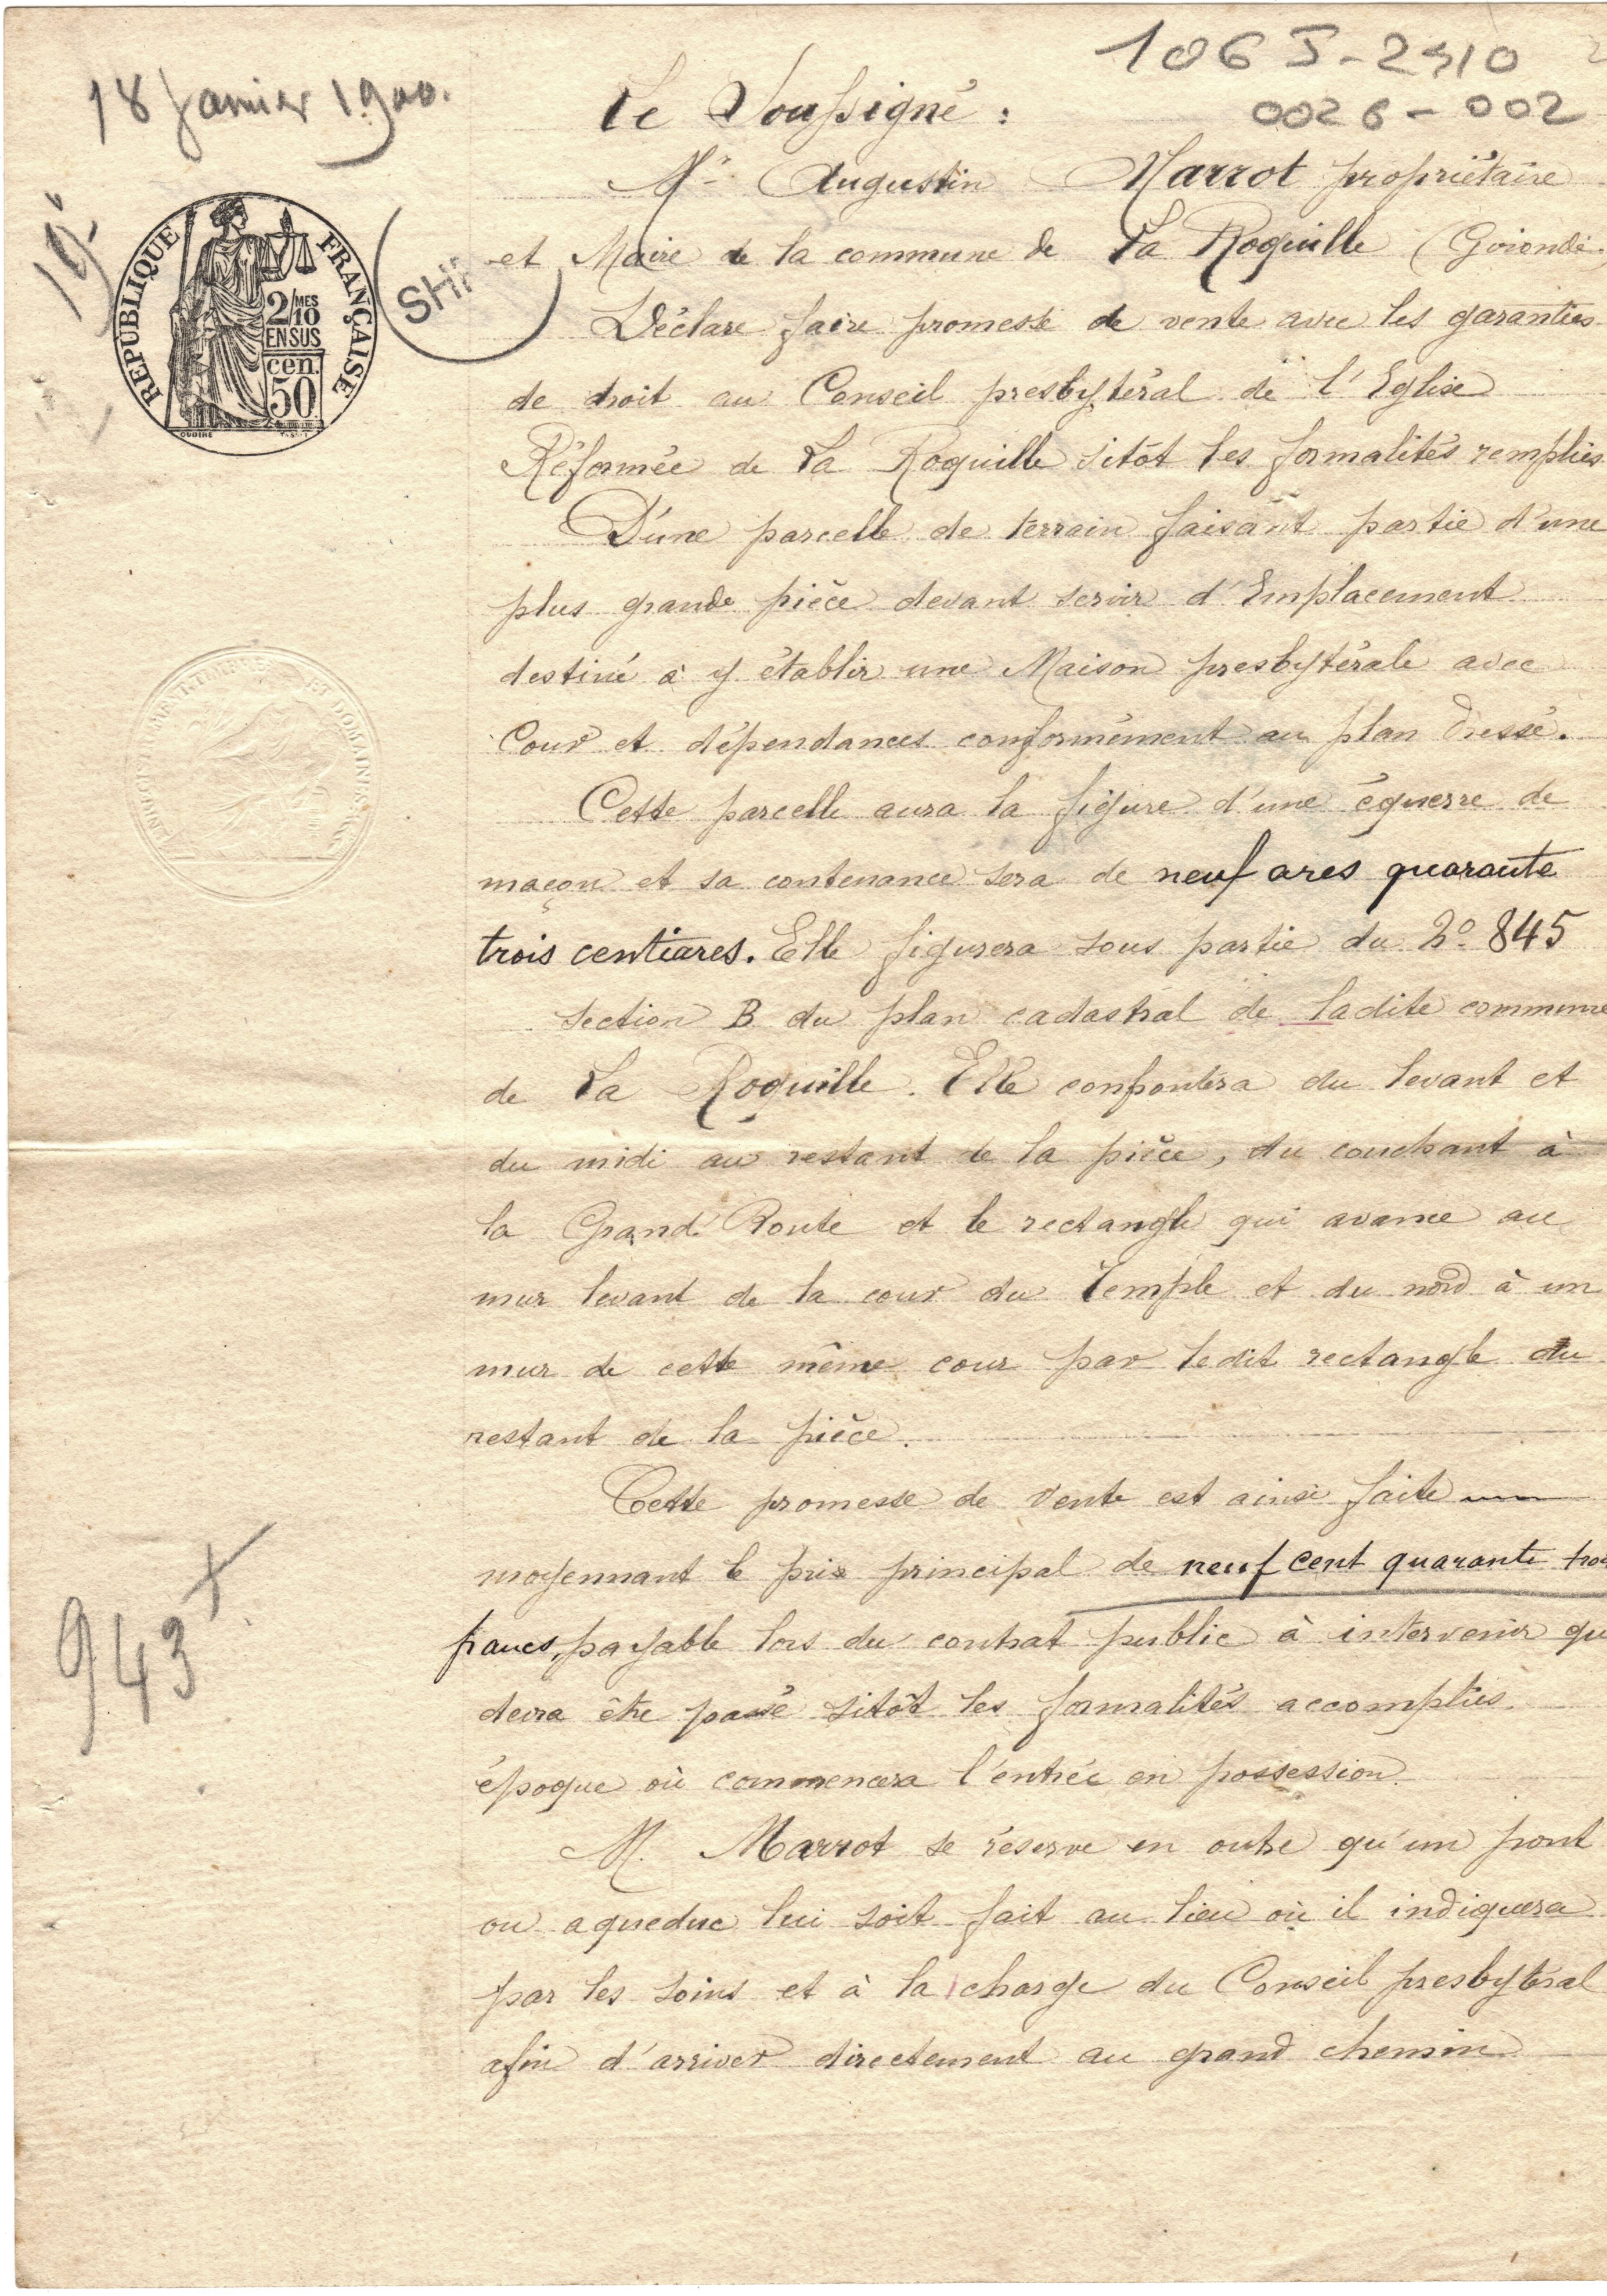 1065-2410
0026-002
18 Janvier 1900.
Le Soussigné :
Mr Augustin Marrot propriétaire
et Maire de la commune de La Roquille (Gironde)
RÉPUBLIQUE FRANÇAISE
2/10 MES
EN SUS
cen.
50
OUDINÉ
Déclare faire promesse de vente avec les garanties
de droit au Conseil presbytéral de l'Eglise
Réformée de La Roquille sitôt les formalités remplies
D'une parcelle de terrain faisant partie d'une
plus grande pièce devant servir d'Emplacement
destiné à y établir une Maison presbytérale avec
Cour et dépendances conformément au plan dressé.
Cette parcelle aura la figure d'une équerre de
maçon et sa contenance sera de neuf ares quarante
trois centiares. Elle figurera sous partie du No 845
section B du plan cadastral de ladite commune
de La Roquille. Elle confontera du levant et
du midi au restant de la pièce, du couchant à
la Grand'Route et le rectangle qui avance au
mur levant de la cour du Temple et du nord à un
mur de cette même cour par ledit rectangle du
restant de la pièce.
Cette promesse de vente est ainsi faite
moyennant le prix principal de neuf cent quarante trois
francs, payable lors du contrat public à intervenir qu
devra être passé sitôt les formalités accomplies
époque où commencera l'entrée en possession.
943
M. Marrot se réserve en outre qu'un pont
ou aqueduc lui soit fait au lieu où il indiquera
par les soins et à la charge du Conseil presbytéral
afin d'arriver directement au grand chemin